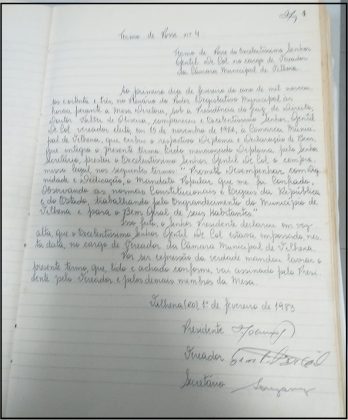 Termo de Posse nº 4
Termo de Posse do Excelentíssimo Senhor
Gentil De Col no cargo de Vereador
da Câmara Municipal de Vilhena
Ao primeiro dia de fevereiro do ano de mil novecen
tos e oitenta e três, no Plenário do Poder Legislativo Municipal, às
horas, perante a Mesa Diretora, sob a Presidência do Juiz de Direito,
Doutor Valter de Oliveira, compareceu o Excelentíssimo Senhor Gentil
De Col vereador eleito em 15 de novembro de 1982, à Câmara Munici-
pal de Vilhena, que exibiu o respectivo Diploma e Declaração de Bens,
que integra o presente termo. Como determinado
Secretário, prestou o Excelentíssimo Senhor Gentil De Col o compro
misso legal, nos seguintes termos: "Prometo Desempenhar com Dig
nidade e Dedicação, o Mandato Popular que me foi Confiado,
Observando as normas Constitucionais e Legais da República
e do Estado, trabalhando pelo Engrandecimento do Município de
Vilhena e para o Bem Geral de seus habitantes."
Isso feito, o Senhor Presidente declarou em voz
alta, que o Excelentíssimo Senhor Gentil De Col estava empossado, nes
ta data, no cargo de Vereador da Câmara Municipal de Vilhena.
Por ser expressão da verdade mandou lavrar o
presente termo, que, lido e achado conforme, vai assinado pelo Presi-
dente pelo Vereador e pelos demais membros da Mesa.
Vilhena (RO), 1º de fevereiro de 1983
Presidente
Vereador
Secretário